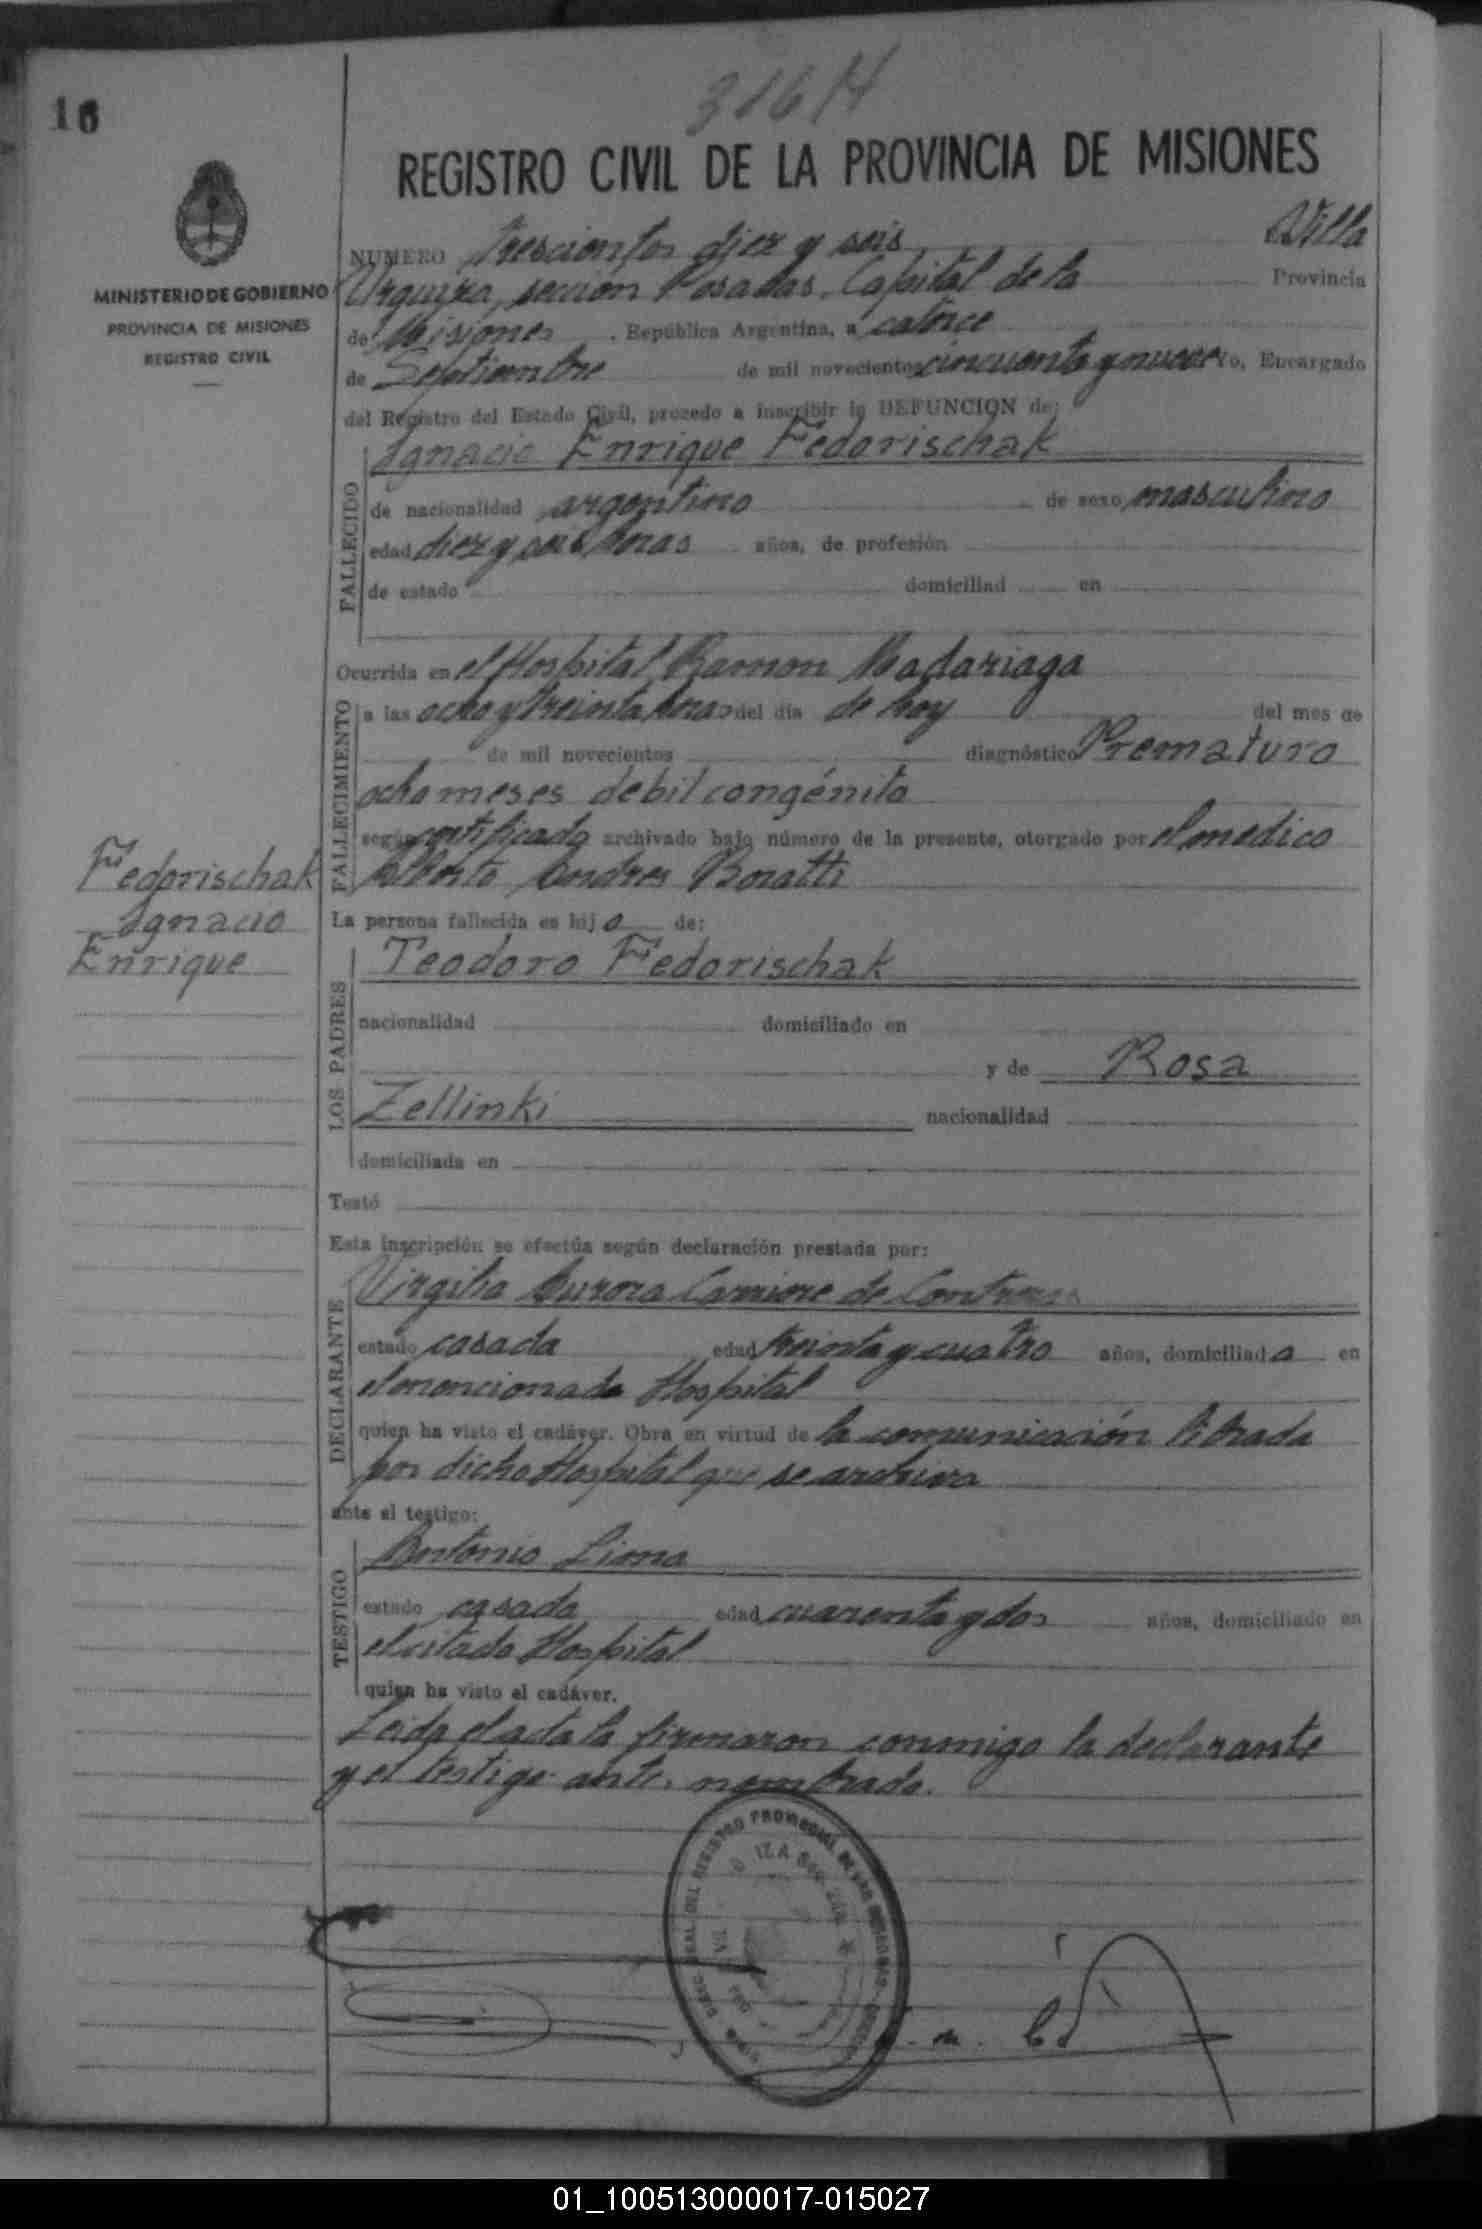 16
316 H
REGISTRO CIVIL DE LA PROVINCIA DE MISIONES
MINISTERIO DE GOBIERNO
PROVINCIA DE MISIONES
REGISTRO CIVIL
NUMERO Trescientos diez y seis Villa
Urquiza, seccion Posadas, Capital de la Provincia
de Misiones, República Argentina, a catorce
de Septiembre de mil novecientos cincuenta y nueve Yo, Encargado
del Registro del Estado Civil, procedo a inscribir la DEFUNCION de:
Ignacio Enrique Fedorischak
FALLECIDO
de nacionalidad argentino de sexo masculino
edad diez y seis horas años, de profesión
de estado domiciliad en
Ocurrida en el Hospital Ramon Madariaga
FALLECIMIENTO
a las ocho y treinta horas del día de hoy del mes de
de mil novecientos diagnóstico Prematuro
ocho meses debil congénito
según certificado archivado bajo número de la presente, otorgado por el medico
Alberto Andres Boratti
Fedorischak
Ignacio
Enrique
La persona fallecida es hijo de:
LOS PADRES
Teodoro Fedorischak
nacionalidad domiciliado en
y de Rosa
Zellinki nacionalidad
domiciliada en
Testó
Esta inscripción se efectúa según declaración prestada por:
DECLARANTE
Virgilia Aurora de Contreras
estado casada edad treinta y cuatro años, domiciliada en
el mencionado Hospital
quien ha visto el cadáver. Obra en virtud de la comunicación librada
por dicho Hospital que se archiva
ante el testigo:
TESTIGO
Antonio Lima
estado casado edad cuarenta y dos años, domiciliado en
el citado Hospital
quien ha visto el cadáver.
Leida el acta la firmaron conmigo la declarante
y el testigo antes nombrado.
01_100513000017-015027